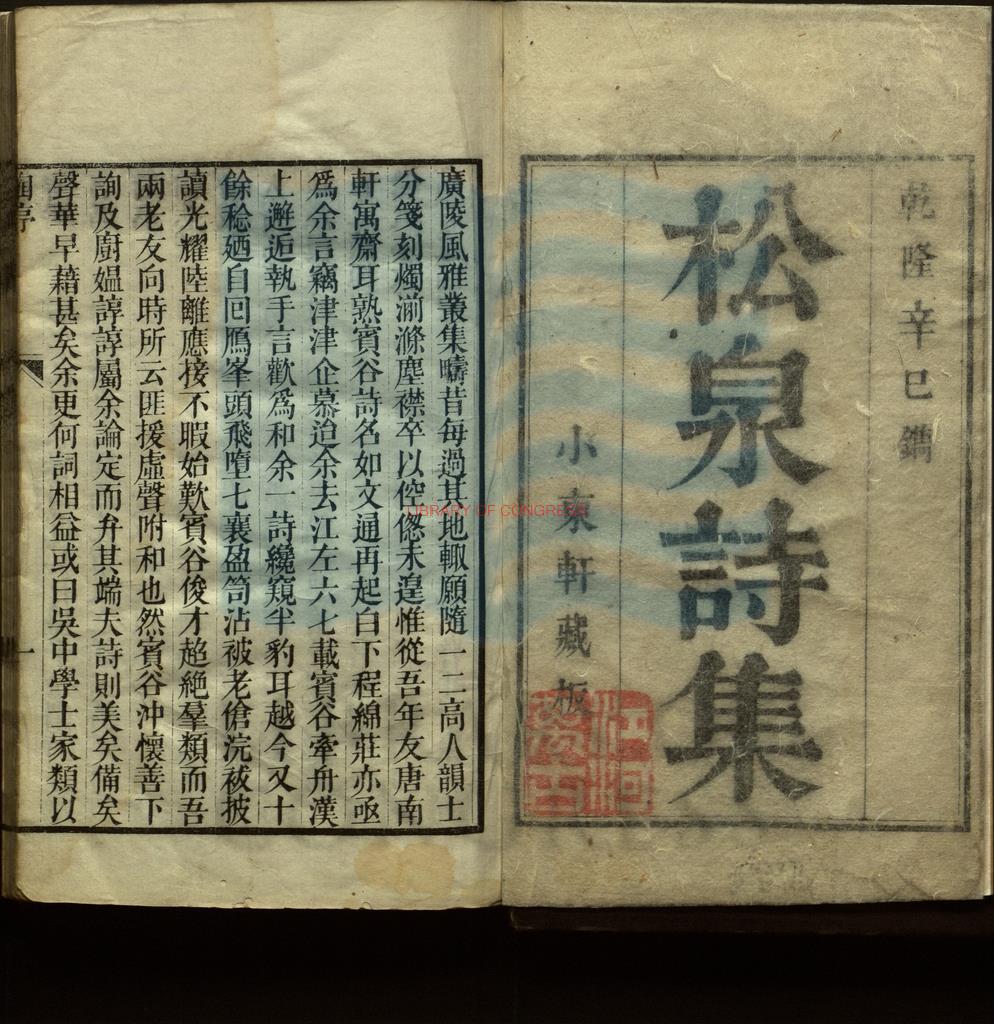 乾隆辛巳鐫
松泉詩集
小東軒藏板
廣陵風雅叢集疇昔每過其地輙願隨一二高人韻士
分箋刻燭湔滌塵襟卒以倥偬未遑惟從吾年友唐南
軒寓齋耳熟賓谷詩名如文通再起白下程綿莊亦亟
爲余言竊津津企慕迨余去江左六七載賓谷牽舟漢
上邂逅執手言歡爲和余一詩纔窺半豹耳越今又十
餘稔廼自回鴈峯頭飛墮七襄盈笥沾被老傖浣祓披
讀光耀陸離應接不暇始歎賓谷俊才超絶羣類而吾
兩老友向時所云匪援虛聲附和也然賓谷沖懷善下
詢及廚媼諄諄屬余論定而弁其端夫詩則美矣備矣
聲華早藉甚矣余更何詞相益或曰吳中學士家類以
一
LIBRARY OF CONGRESS